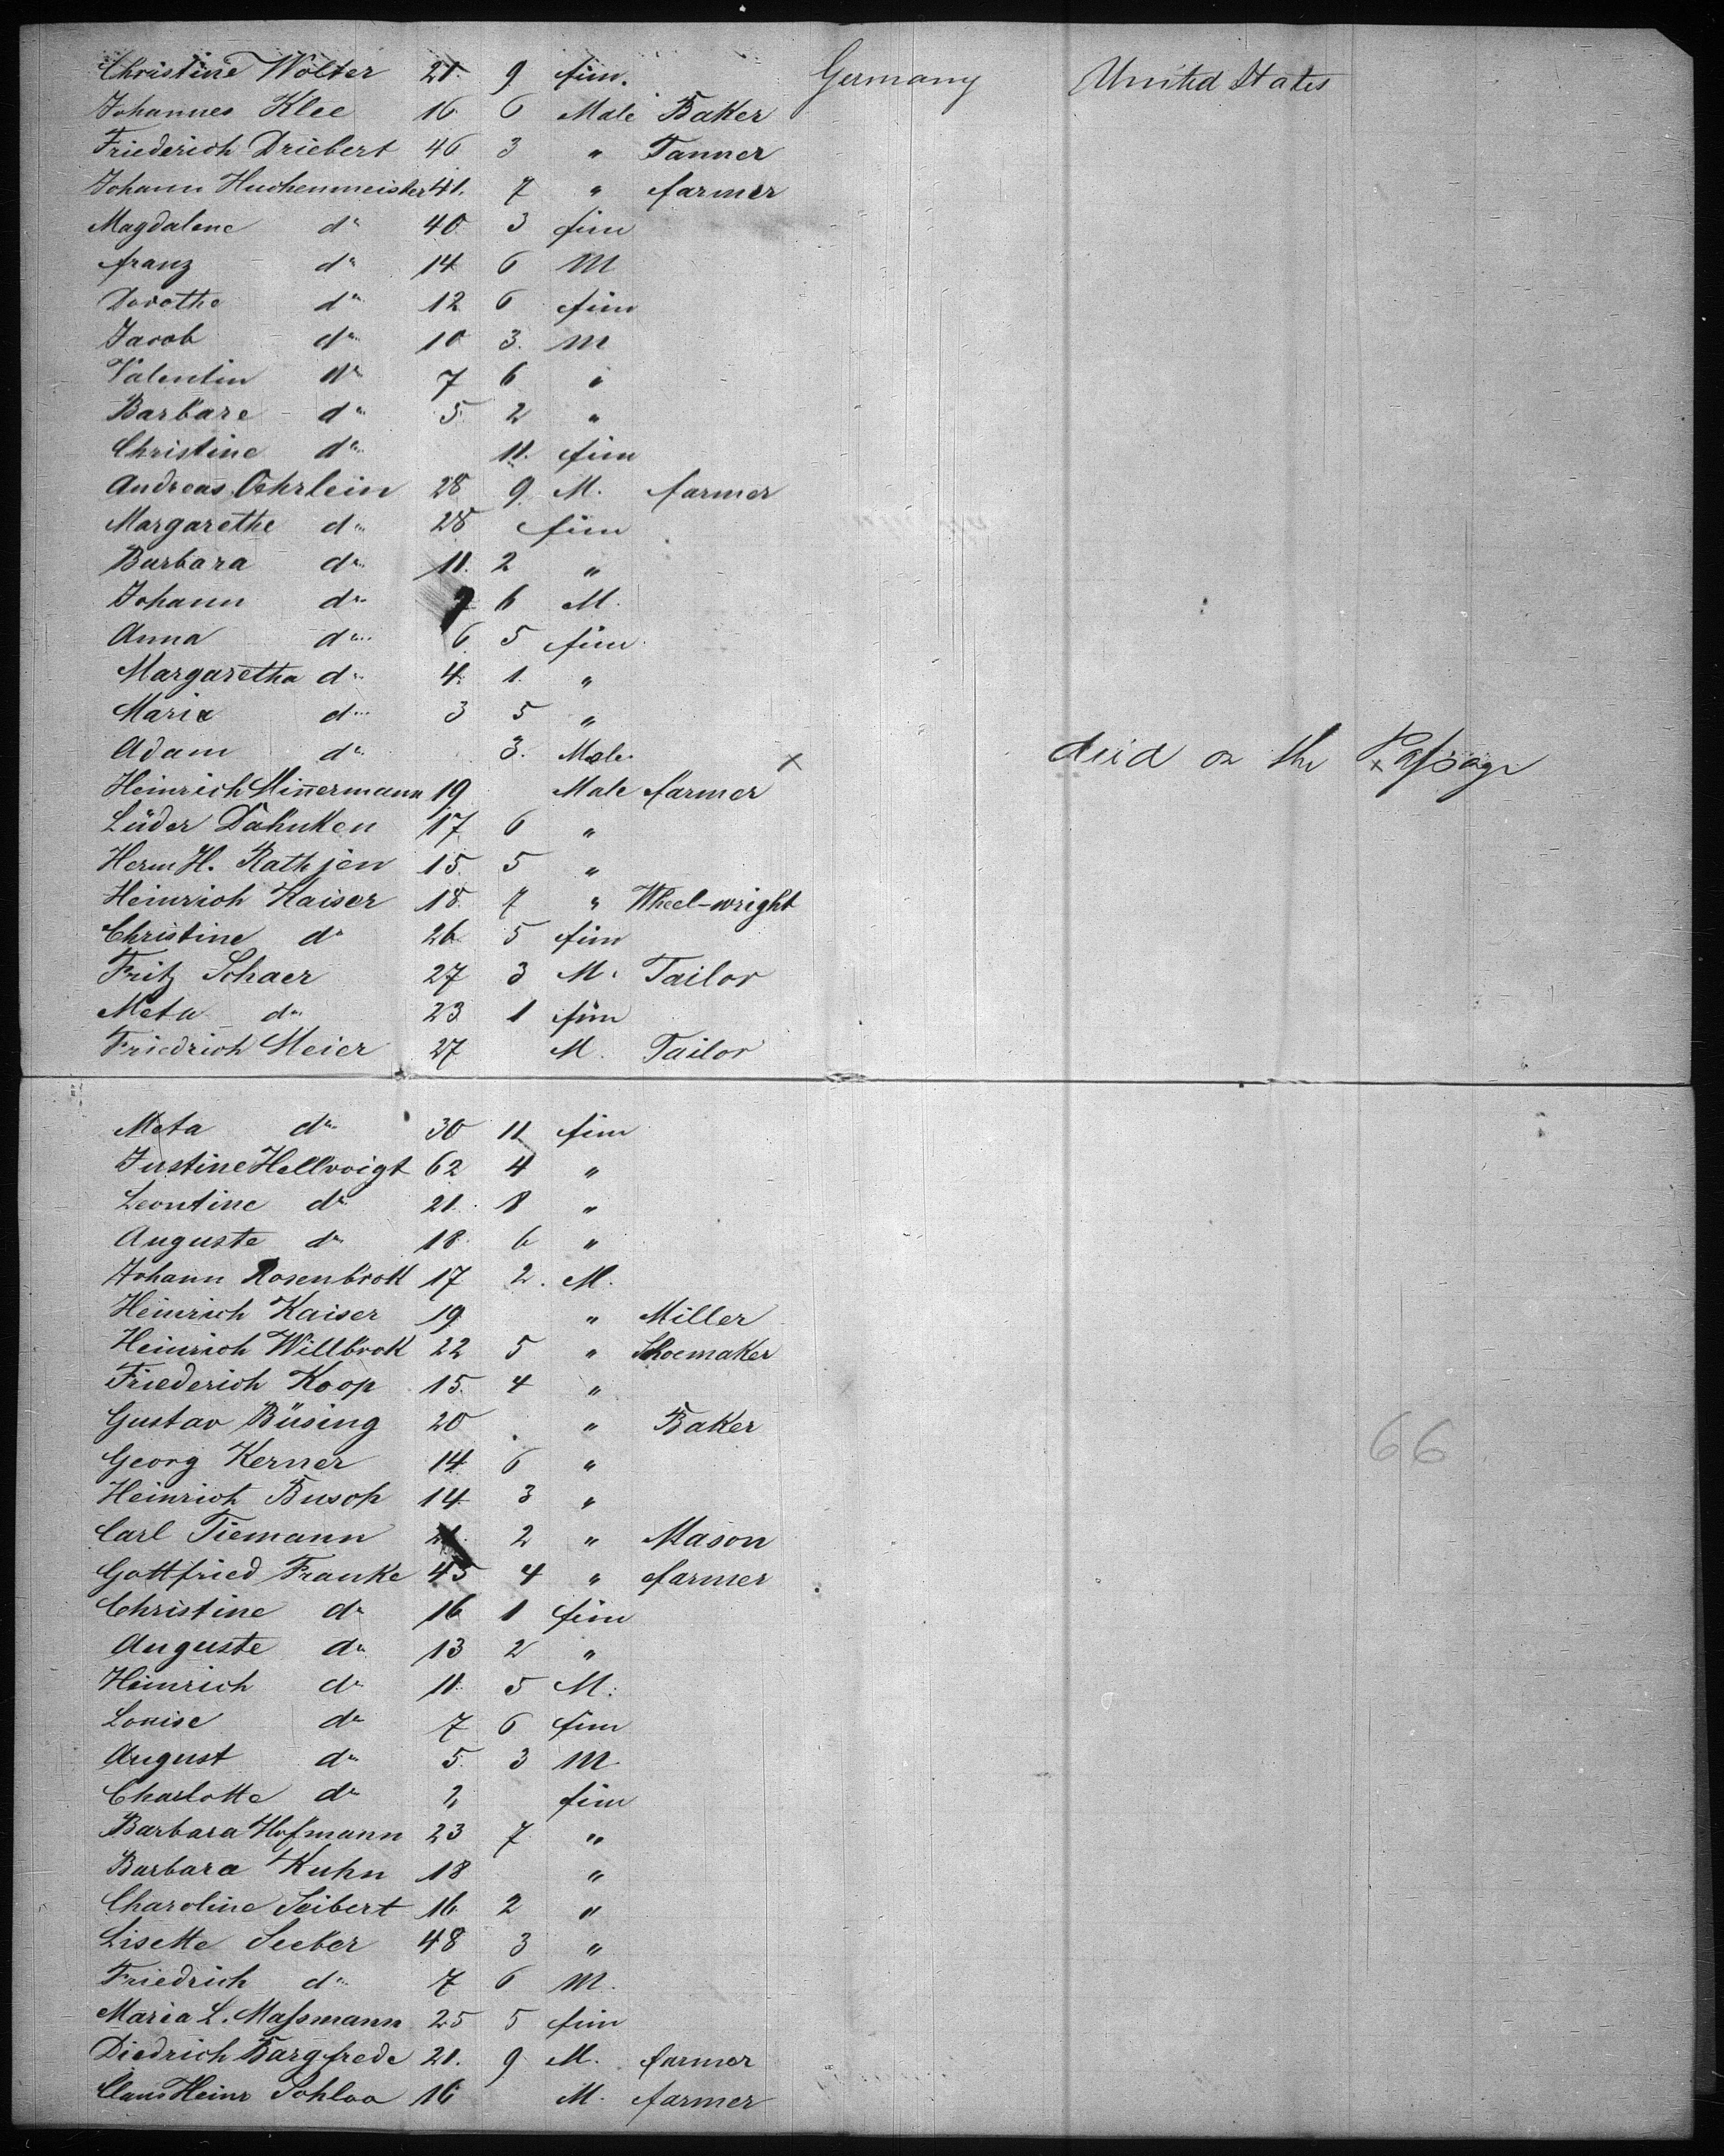 Christine Wolter 21. 9 fem. Germany United States
Johannes Klee 16 6 Male Baker
Friederich Driebert 46 3 " Tanner
Johann Huchenmeister 41. 7 " farmer
Magdalene do 40 3 fem
franz do 14 6 M
Dorothe do 12 6 fem
Jacob do 10 3. M
Valentin do 7 6 "
Barbare do 5. 2 "
Christine do 11. fem
Andreas Oehrlein 28 9 M. farmer
Margarethe do 28 fem
Barbara do 11. 2 "
Johann do 9 6 M.
Anna do 6 5 fem
Margaretha do 4. 1. "
Maria do 3 5 "
Adam do 3. Male x died on the Passage
Heinrich Minnermann 19 Male farmer
Lüder Dähnken 17 6 "
Herm H. Rathjen 15. 5 "
Heinrich Kaiser 18. 7 " Wheel-wright
Christine do 26 5 fem
Fritz Schaer 27 3 M. Tailor
Meta do 23 1 fem
Friedrich Meier 27 M. Tailor
Meta do 30 11 fem
Justine Hellvoigt 62 4 "
Leontine do 21. 8 "
Auguste do 18. 6 "
Johann Rosenbrok 17 2. M.
Heinrich Kaiser 19 " Miller
Heinrich Willbrok 22 5 " Shoemaker
Friederich Koop 15. 4 "
Gustav Büsing 20 " Baker
Georg Kerner 14 6 " 66
Heinrich Busch 14 3 "
Carl Tiemann 2 " Mason
Gottfried Franke 45 4 " farmer
Christine do 16 1 fem
Auguste do 13 2 "
Heinrich do 11. 5 M.
Louise do 7 6 fem
August do 5. 3 M
Charlotte do 2 fem
Barbara Hofmann 23 7 "
Barbara Kuhn 18 "
Charoline Seibert 16 2 "
Lisette Seeker 48 3 "
Friedrich do 7 6 M.
Maria L. Massmann 25 5 fem
Diedrich Bargfrede 21. 9 M. farmer
Claus Heinr 16 M. farmer